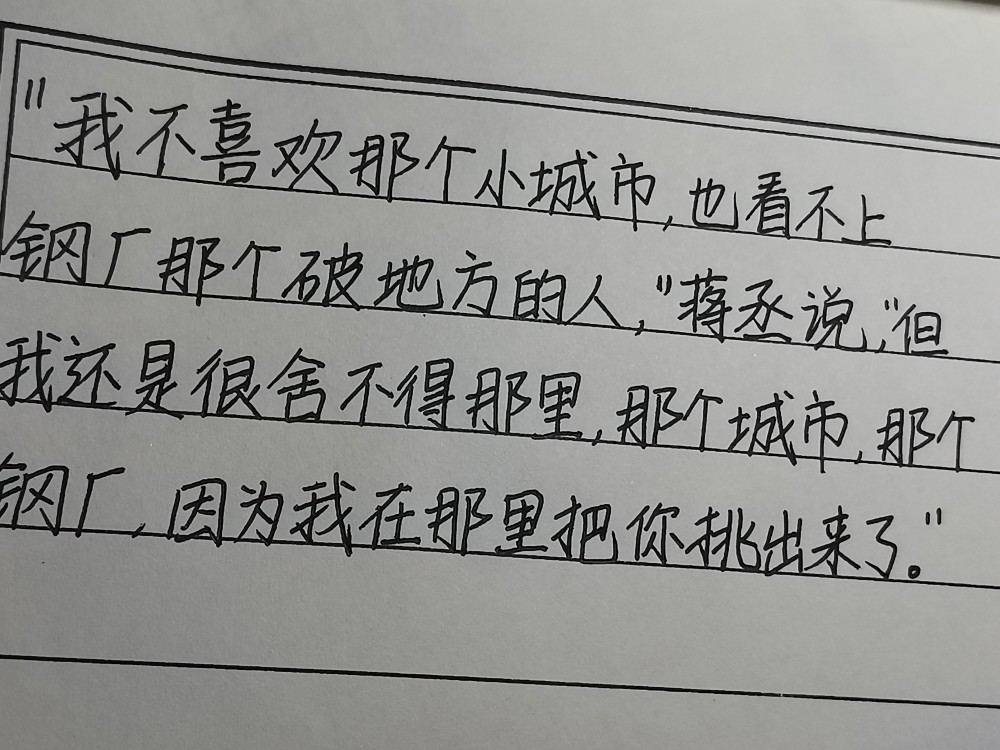 "我不喜欢那个小城市,也看不上
钢厂那个破地方的人,"蒋丞说,"但
我还是很舍不得那里,那个城市,那个
钢厂,因为我在那里把你挑出来了。"